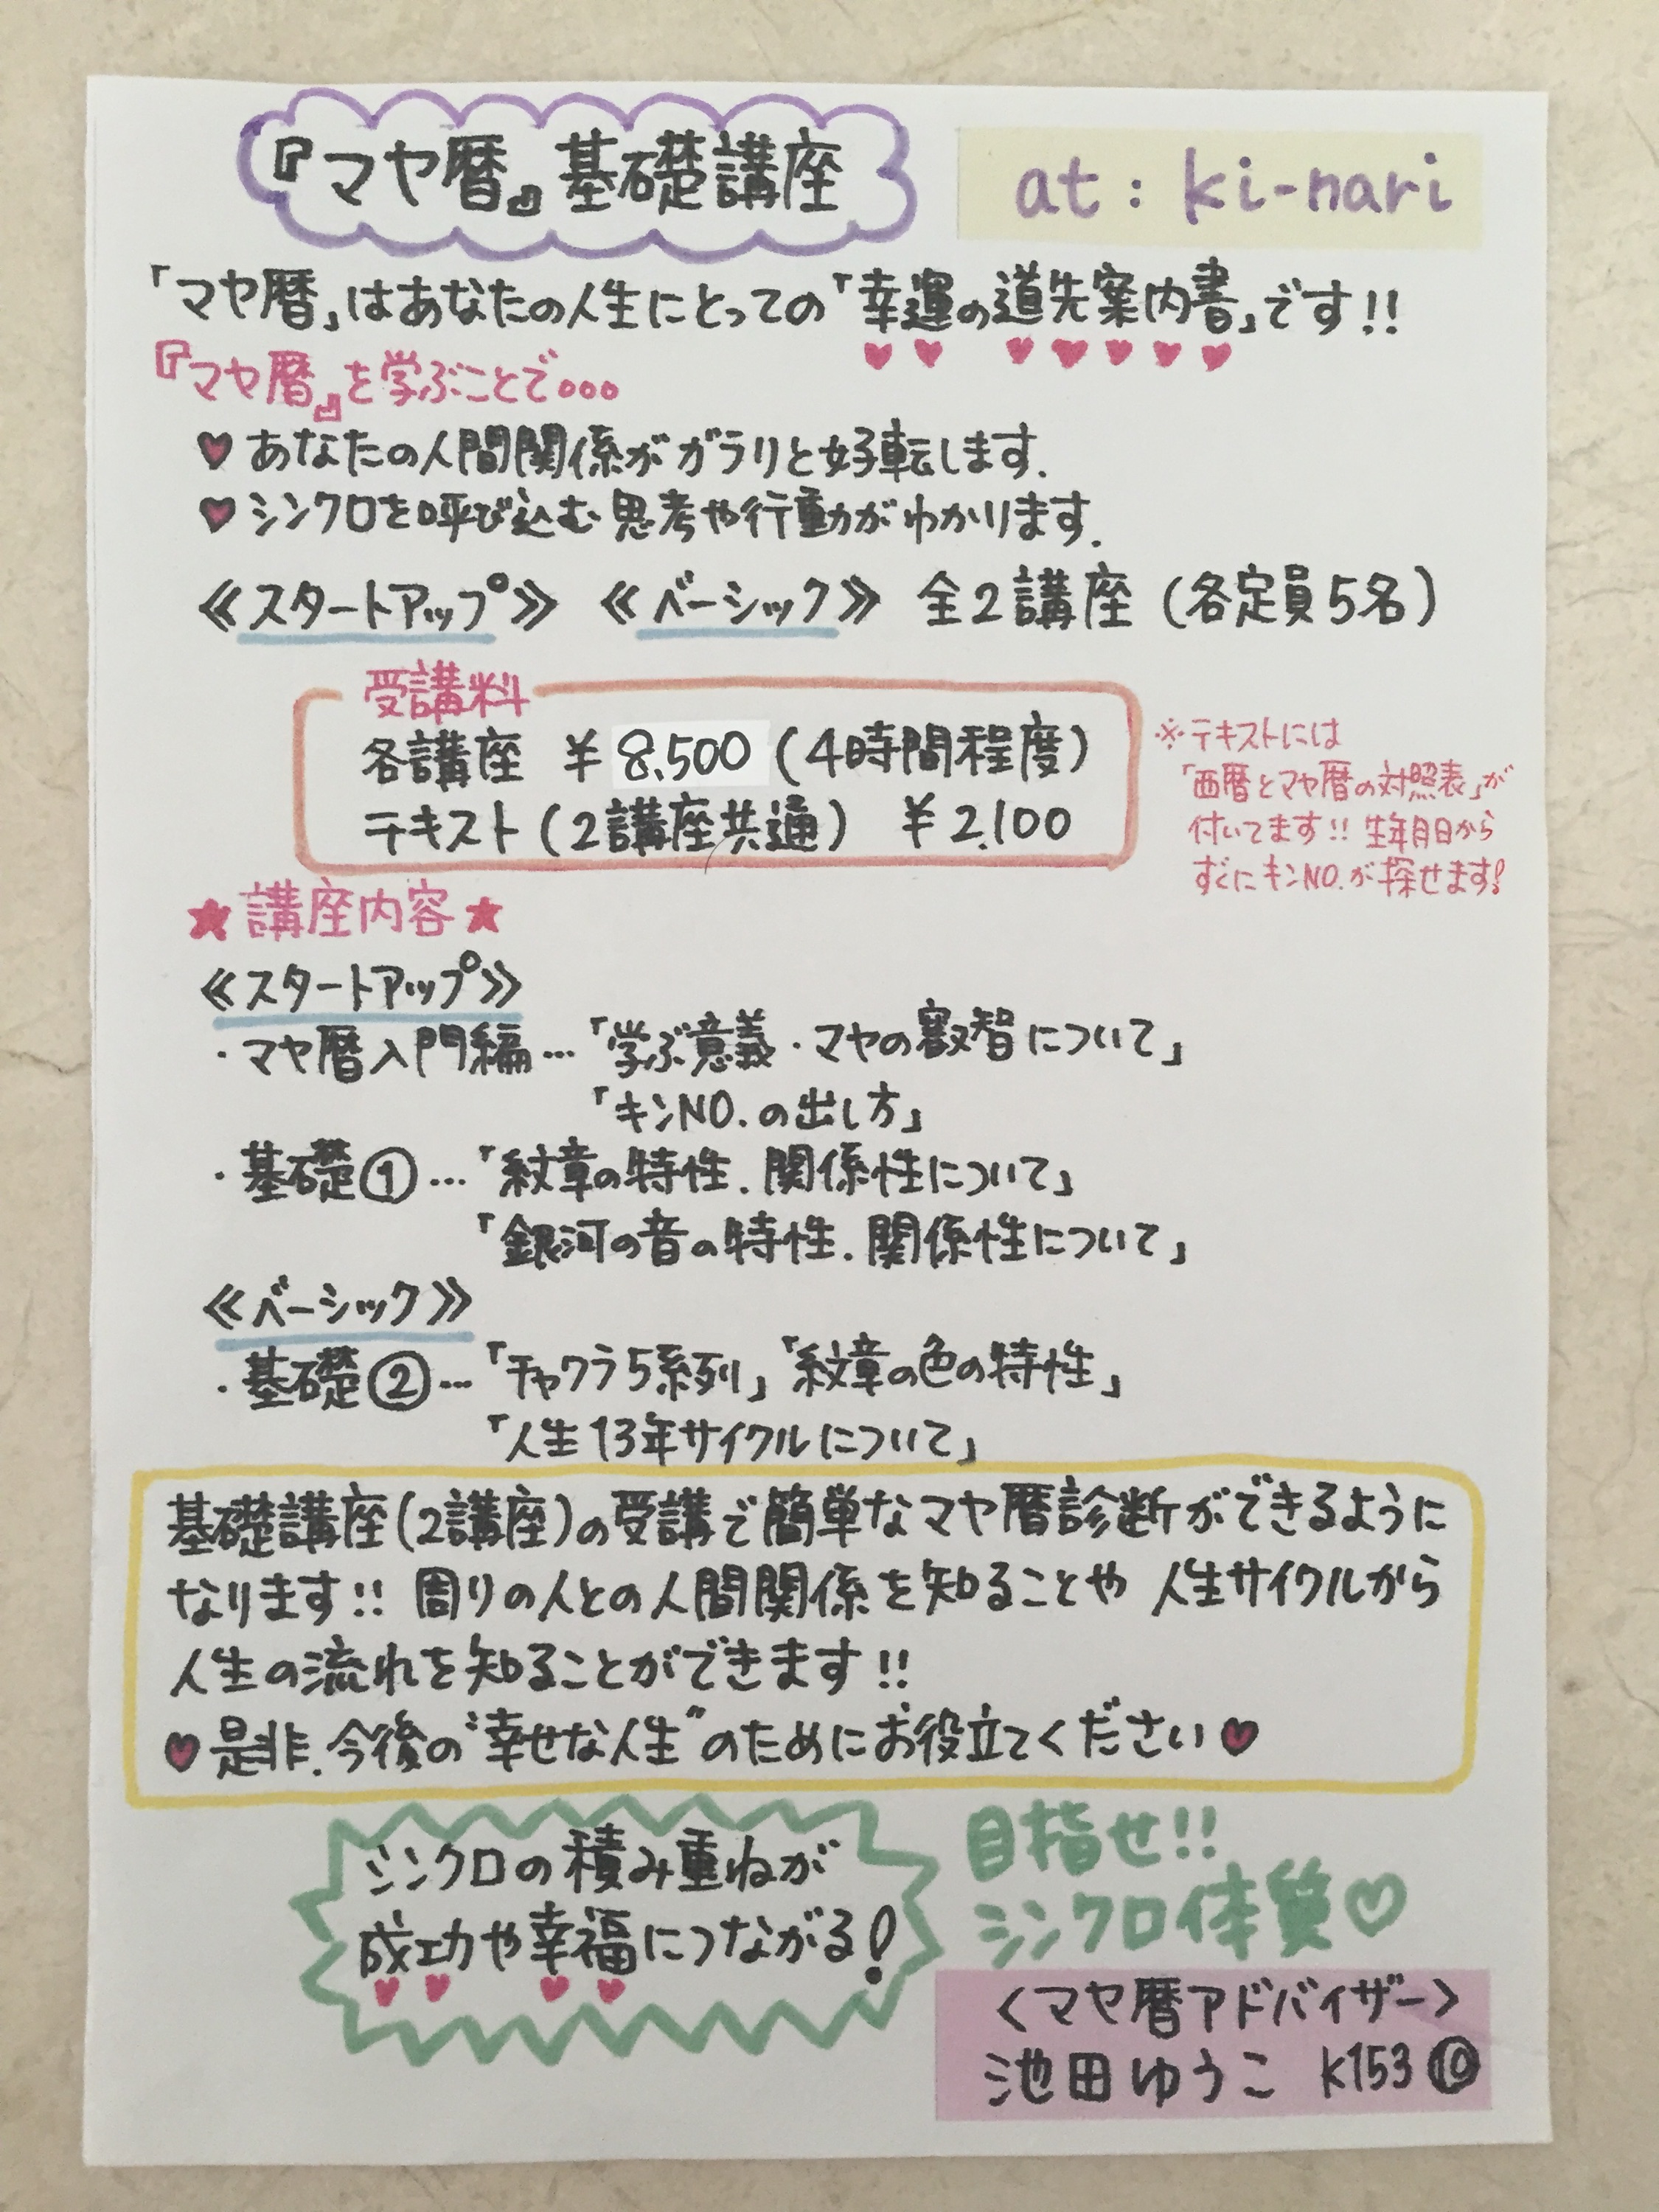 『マヤ暦』基礎講座
at : ki-nari
「マヤ暦」はあなたの人生にとっての「幸運の道先案内書」です!!
『マヤ暦』を学ぶことで…
♥ あなたの人間関係がガラリと好転します.
♥ シンクロを呼び込む思考や行動がわかります.
≪スタートアップ≫ ≪ベーシック≫ 全2講座 (各定員5名)
受講料
各講座 ¥8,500 (4時間程度)
テキスト (2講座共通) ¥2,100
※テキストには
「西暦とマヤ暦の対照表」が
付いてます!! 生年月日から
すぐにキンNO.が探せます!
★講座内容★
≪スタートアップ≫
・マヤ暦入門編…「学ぶ意義・マヤの叡智について」
「キンNO.の出し方」
・基礎①…「紋章の特性.関係性について」
「銀河の音の特性.関係性について」
≪ベーシック≫
・基礎②…「チャクラ5系列」「紋章の色の特性」
「人生13年サイクルについて」
基礎講座(2講座)の受講で簡単なマヤ暦診断ができるように
なります!! 周りの人との人間関係を知ることや 人生サイクルから
人生の流れを知ることができます!!
♥是非.今後の“幸せな人生”のためにお役立てください♥
シンクロの積み重ねが
成功や幸福につながる!
目指せ!!
シンクロ体質♡
<マヤ暦アドバイザー>
池田ゆうこ K153⑩